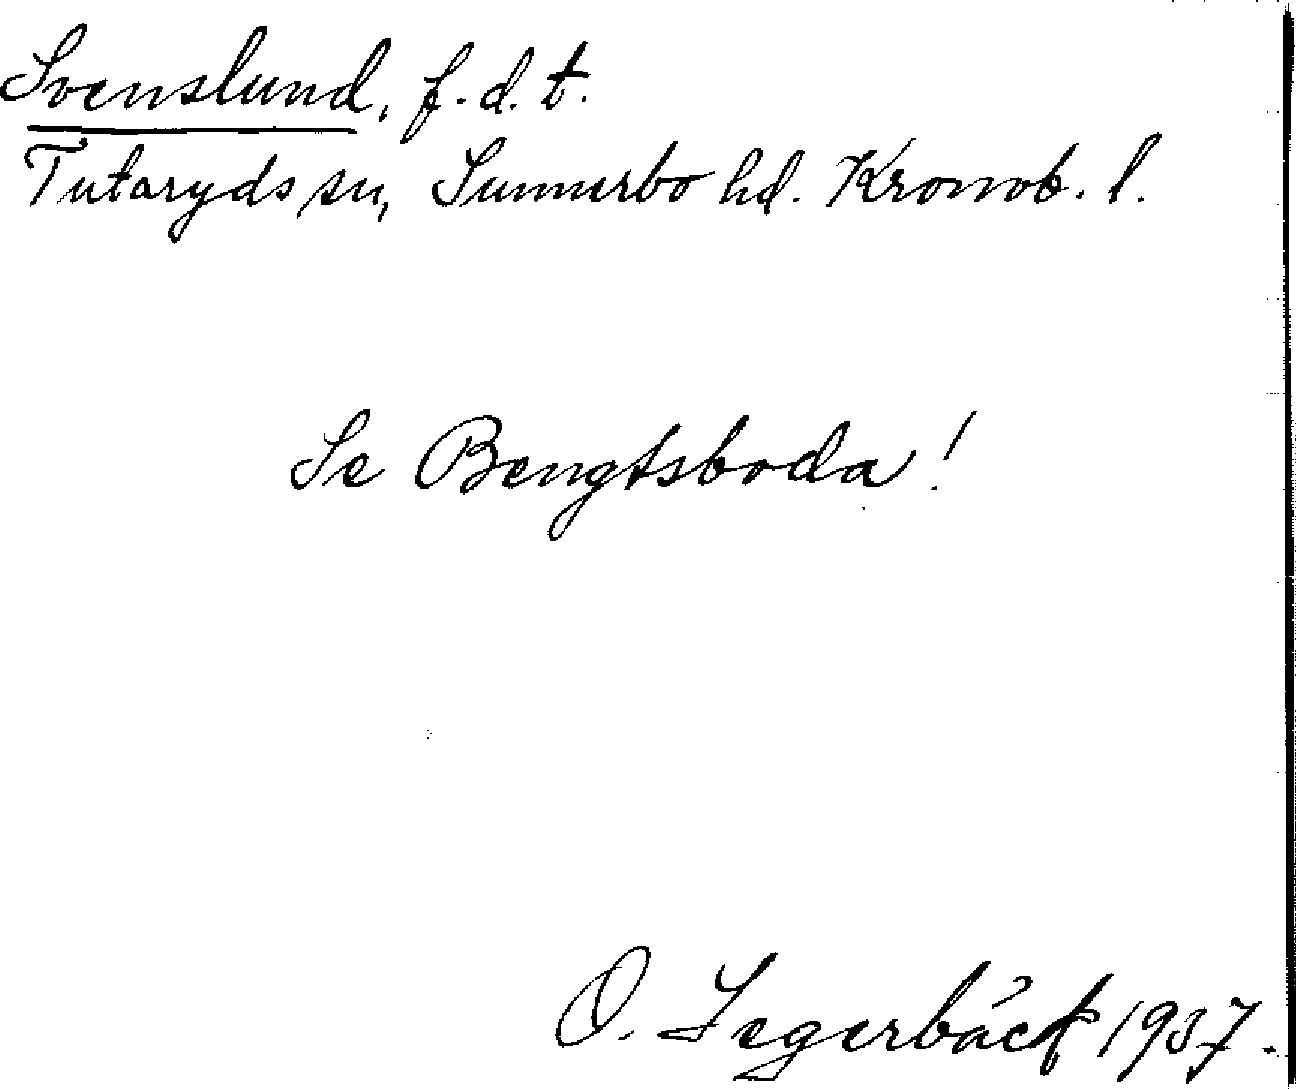 Svenslund, f.d.t.
Tutaryds sn, Sunnerbo hd. Kronob. l.
Se Bengtsboda!
O. Segerbäck 1937.